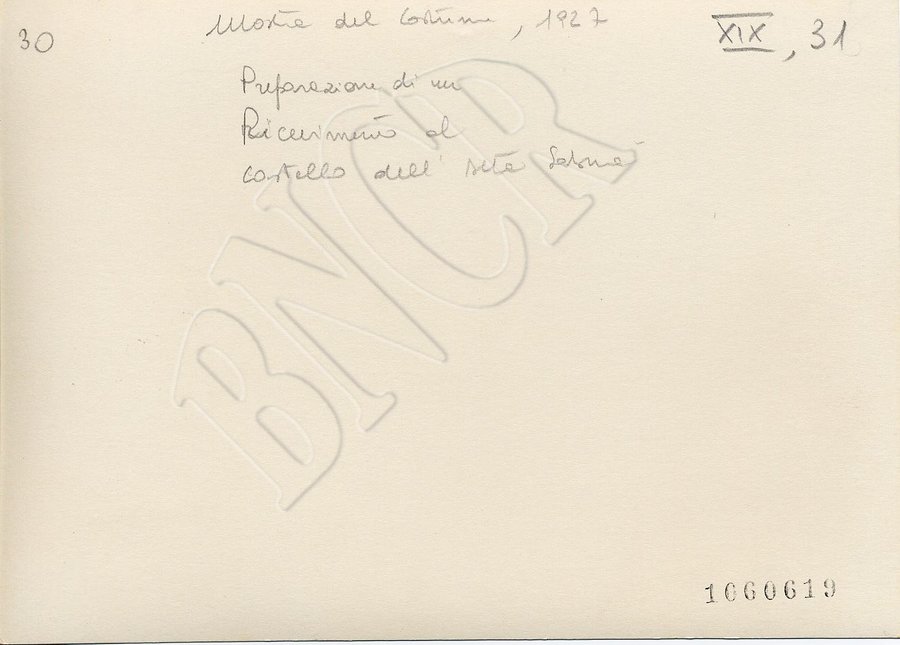 30
Mostra del Costume, 1927
XIX, 31
Preparazione di un
Ricevimento al
Castello dell'Alta Sabina
BNCR
1060619